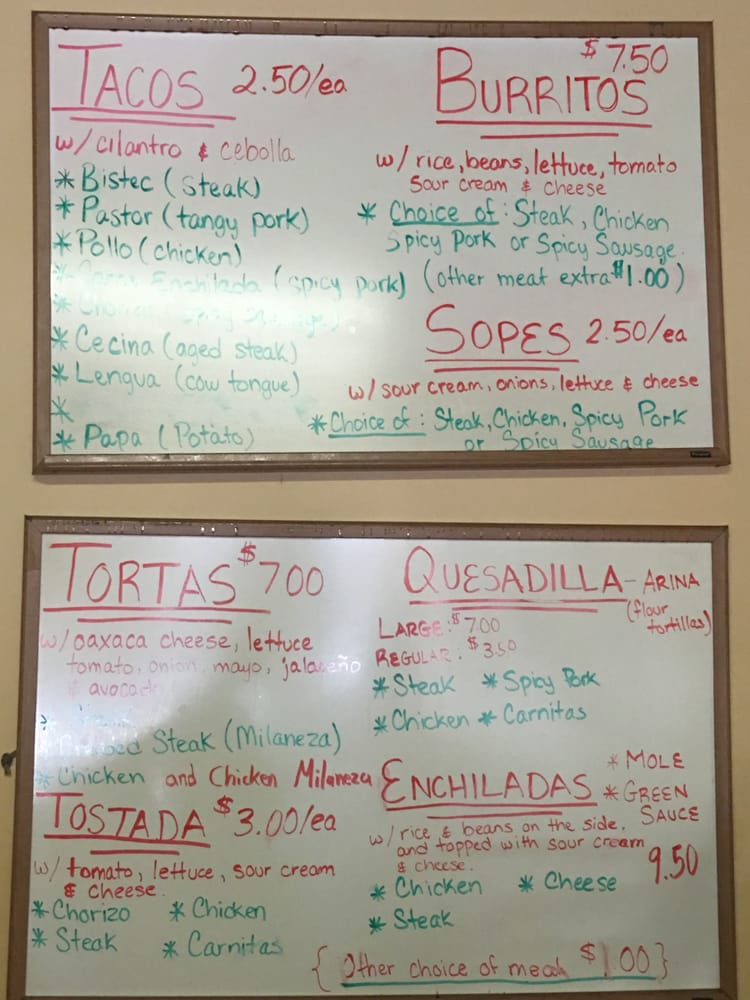 TACOS 2.50/ea
w/ cilantro & cebolla
* Bistec (steak)
* Pastor (tangy pork)
* Pollo (chicken)
* Enchilada (spicy pork)
* Cecina (aged steak)
* Lengua (cow tongue)
*
* Papa (Potato)
$7.50
BURRITOS
w/ rice, beans, lettuce, tomato
sour cream & cheese
* Choice of: Steak, Chicken
Spicy Pork or Spicy Sausage.
(other meat extra $1.00)
SOPES 2.50/ea
w/ sour cream, onions, lettuce & cheese
* Choice of: Steak, Chicken, Spicy Pork
or Spicy Sausage
TORTAS $700
w/ oaxaca cheese, lettuce
tomato, onion, mayo, jalapeño
& avocado
Steak (Milaneza)
* Chicken and Chicken Milaneza
TOSTADA $3.00/ea
w/ tomato, lettuce, sour cream
& cheese.
* Chorizo * Chicken
* Steak * Carnitas
QUESADILLA - ARINA
(flour
tortillas)
LARGE: $700
REGULAR: $3.50
* Steak * Spicy Pork
* Chicken * Carnitas
ENCHILADAS
* MOLE
* GREEN
SAUCE
w/ rice & beans on the side,
and topped with sour cream
& cheese.
9.50
* Chicken * Cheese
* Steak
{ Other choice of meat $1.00 }